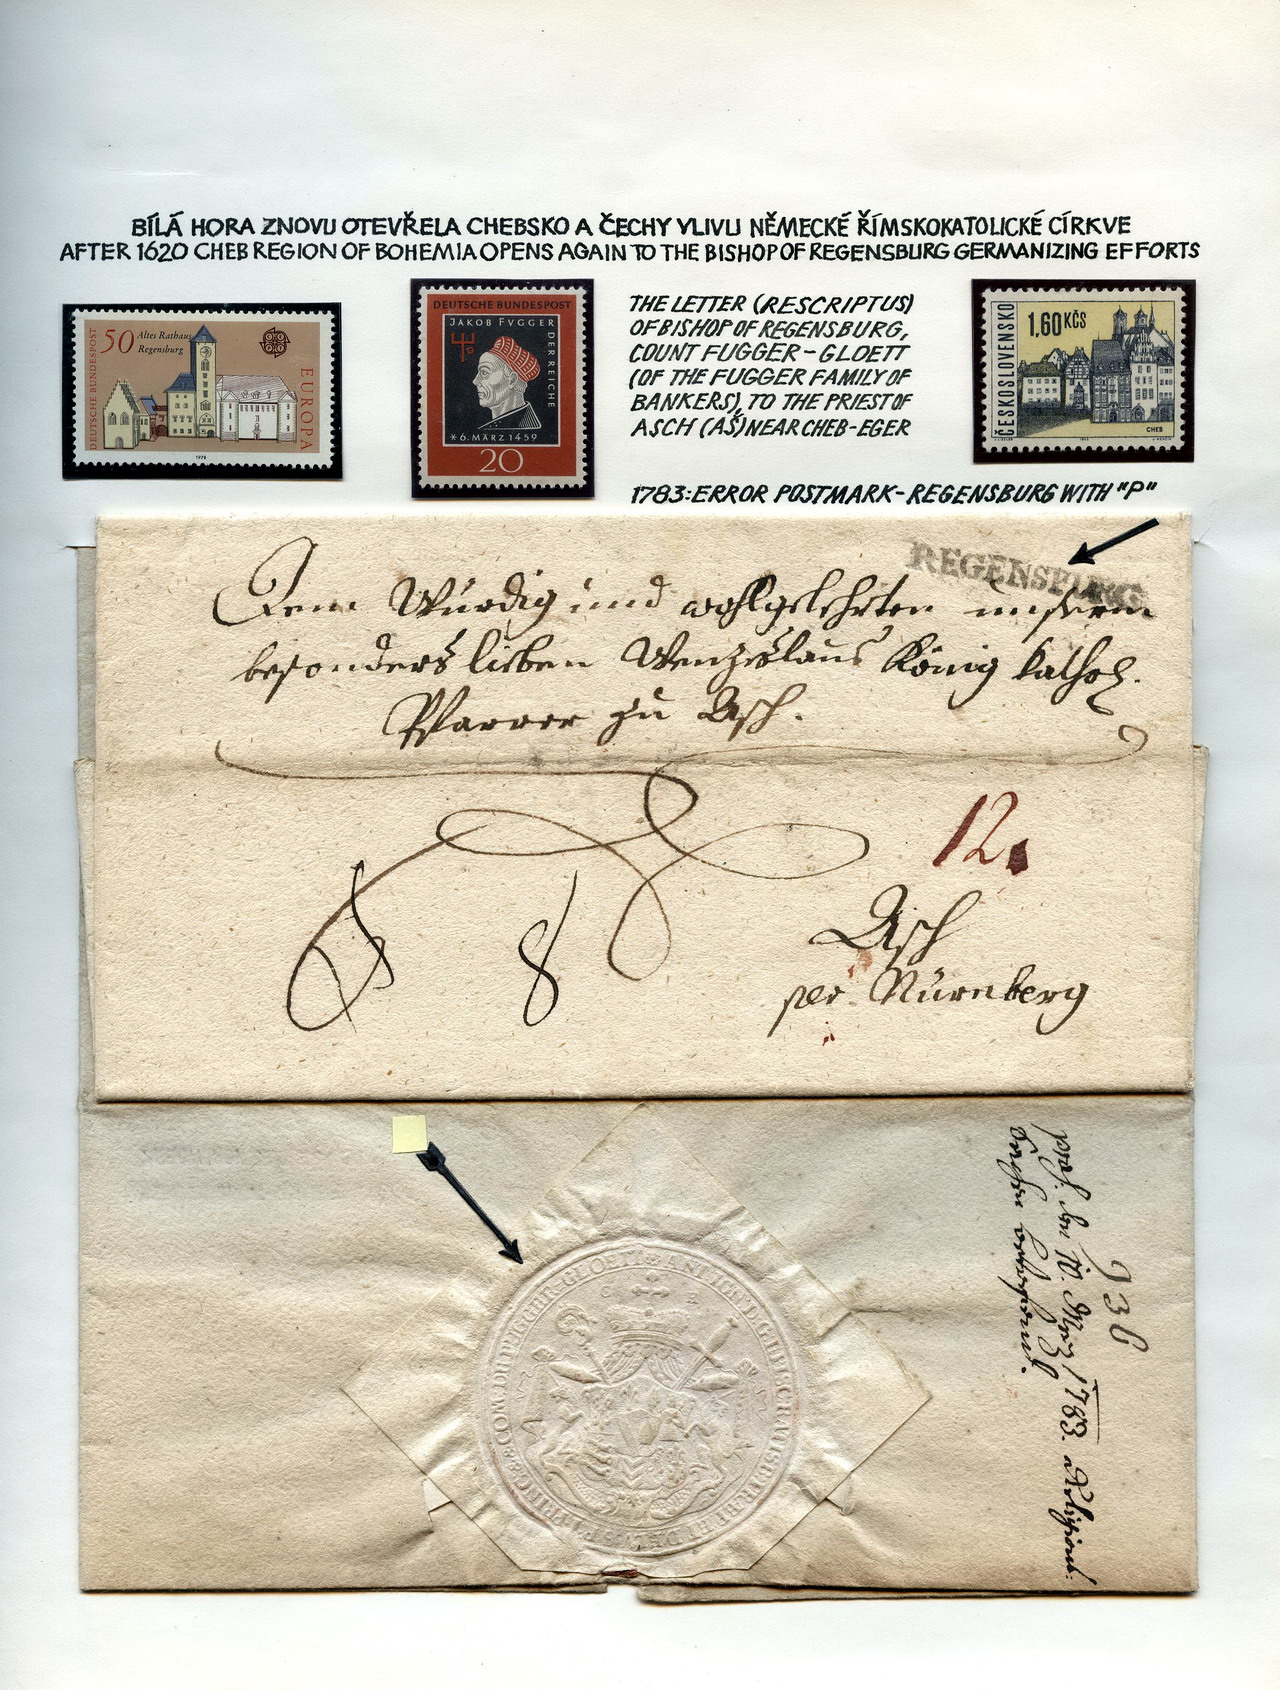 BÍLÁ HORA ZNOVU OTEVŘELA CHEBSKO A ČECHY VLIVU NĚMECKÉ ŘÍMSKOKATOLICKÉ CÍRKVE
AFTER 1620 CHEB REGION OF BOHEMIA OPENS AGAIN TO THE BISHOP OF REGENSBURG GERMANIZING EFFORTS
DEUTSCHE BUNDESPOST
50 Altes Rathaus
Regensburg
EUROPA
1978
DEUTSCHE BUNDESPOST
JAKOB FVGGER
DER REICHE
* 6. MÄRZ 1459
20
THE LETTER (RESCRIPTUS)
OF BISHOP OF REGENSBURG,
COUNT FUGGER-GLOETT
(OF THE FUGGER FAMILY OF
BANKERS), TO THE PRIEST OF
ASCH (AŠ) NEAR CHEB-EGER
ČESKOSLOVENSKO
1,60 KČS
CHEB
1783: ERROR POSTMARK-REGENSBURG WITH "P"
REGENSPURG
Dem Würdig und wohlgelehrten unserm
besonders lieben Wenzeslaus König kathol.
Pfarrer zu Asch.
12.
8
Asch
per Nürnberg
938
1783.